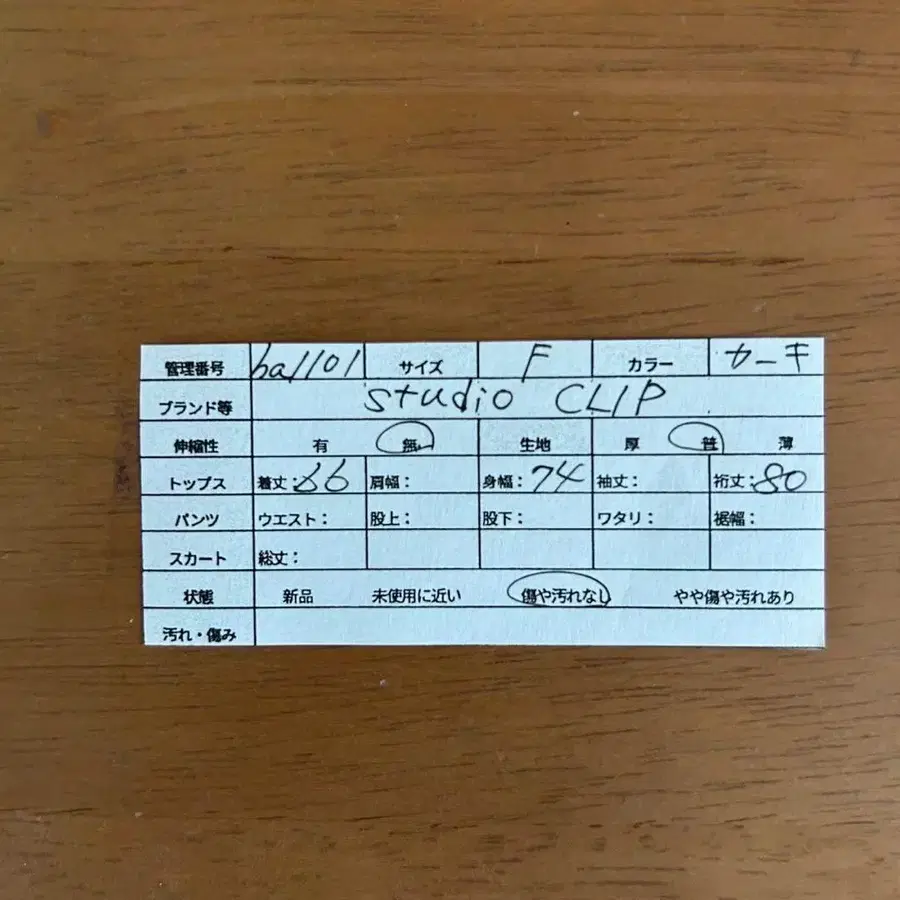 管理番号 ha1101 サイズ F カラー カーキ
ブランド等 studio CLIP
伸縮性 有 無 生地 厚 普 薄
トップス 着丈: 肩幅: 身幅:74 袖丈: 裄丈:80
パンツ ウエスト: 股上: 股下: ワタリ: 裾幅:
スカート 総丈:
状態 新品 未使用に近い 傷や汚れなし やや傷や汚れあり
汚れ・傷み